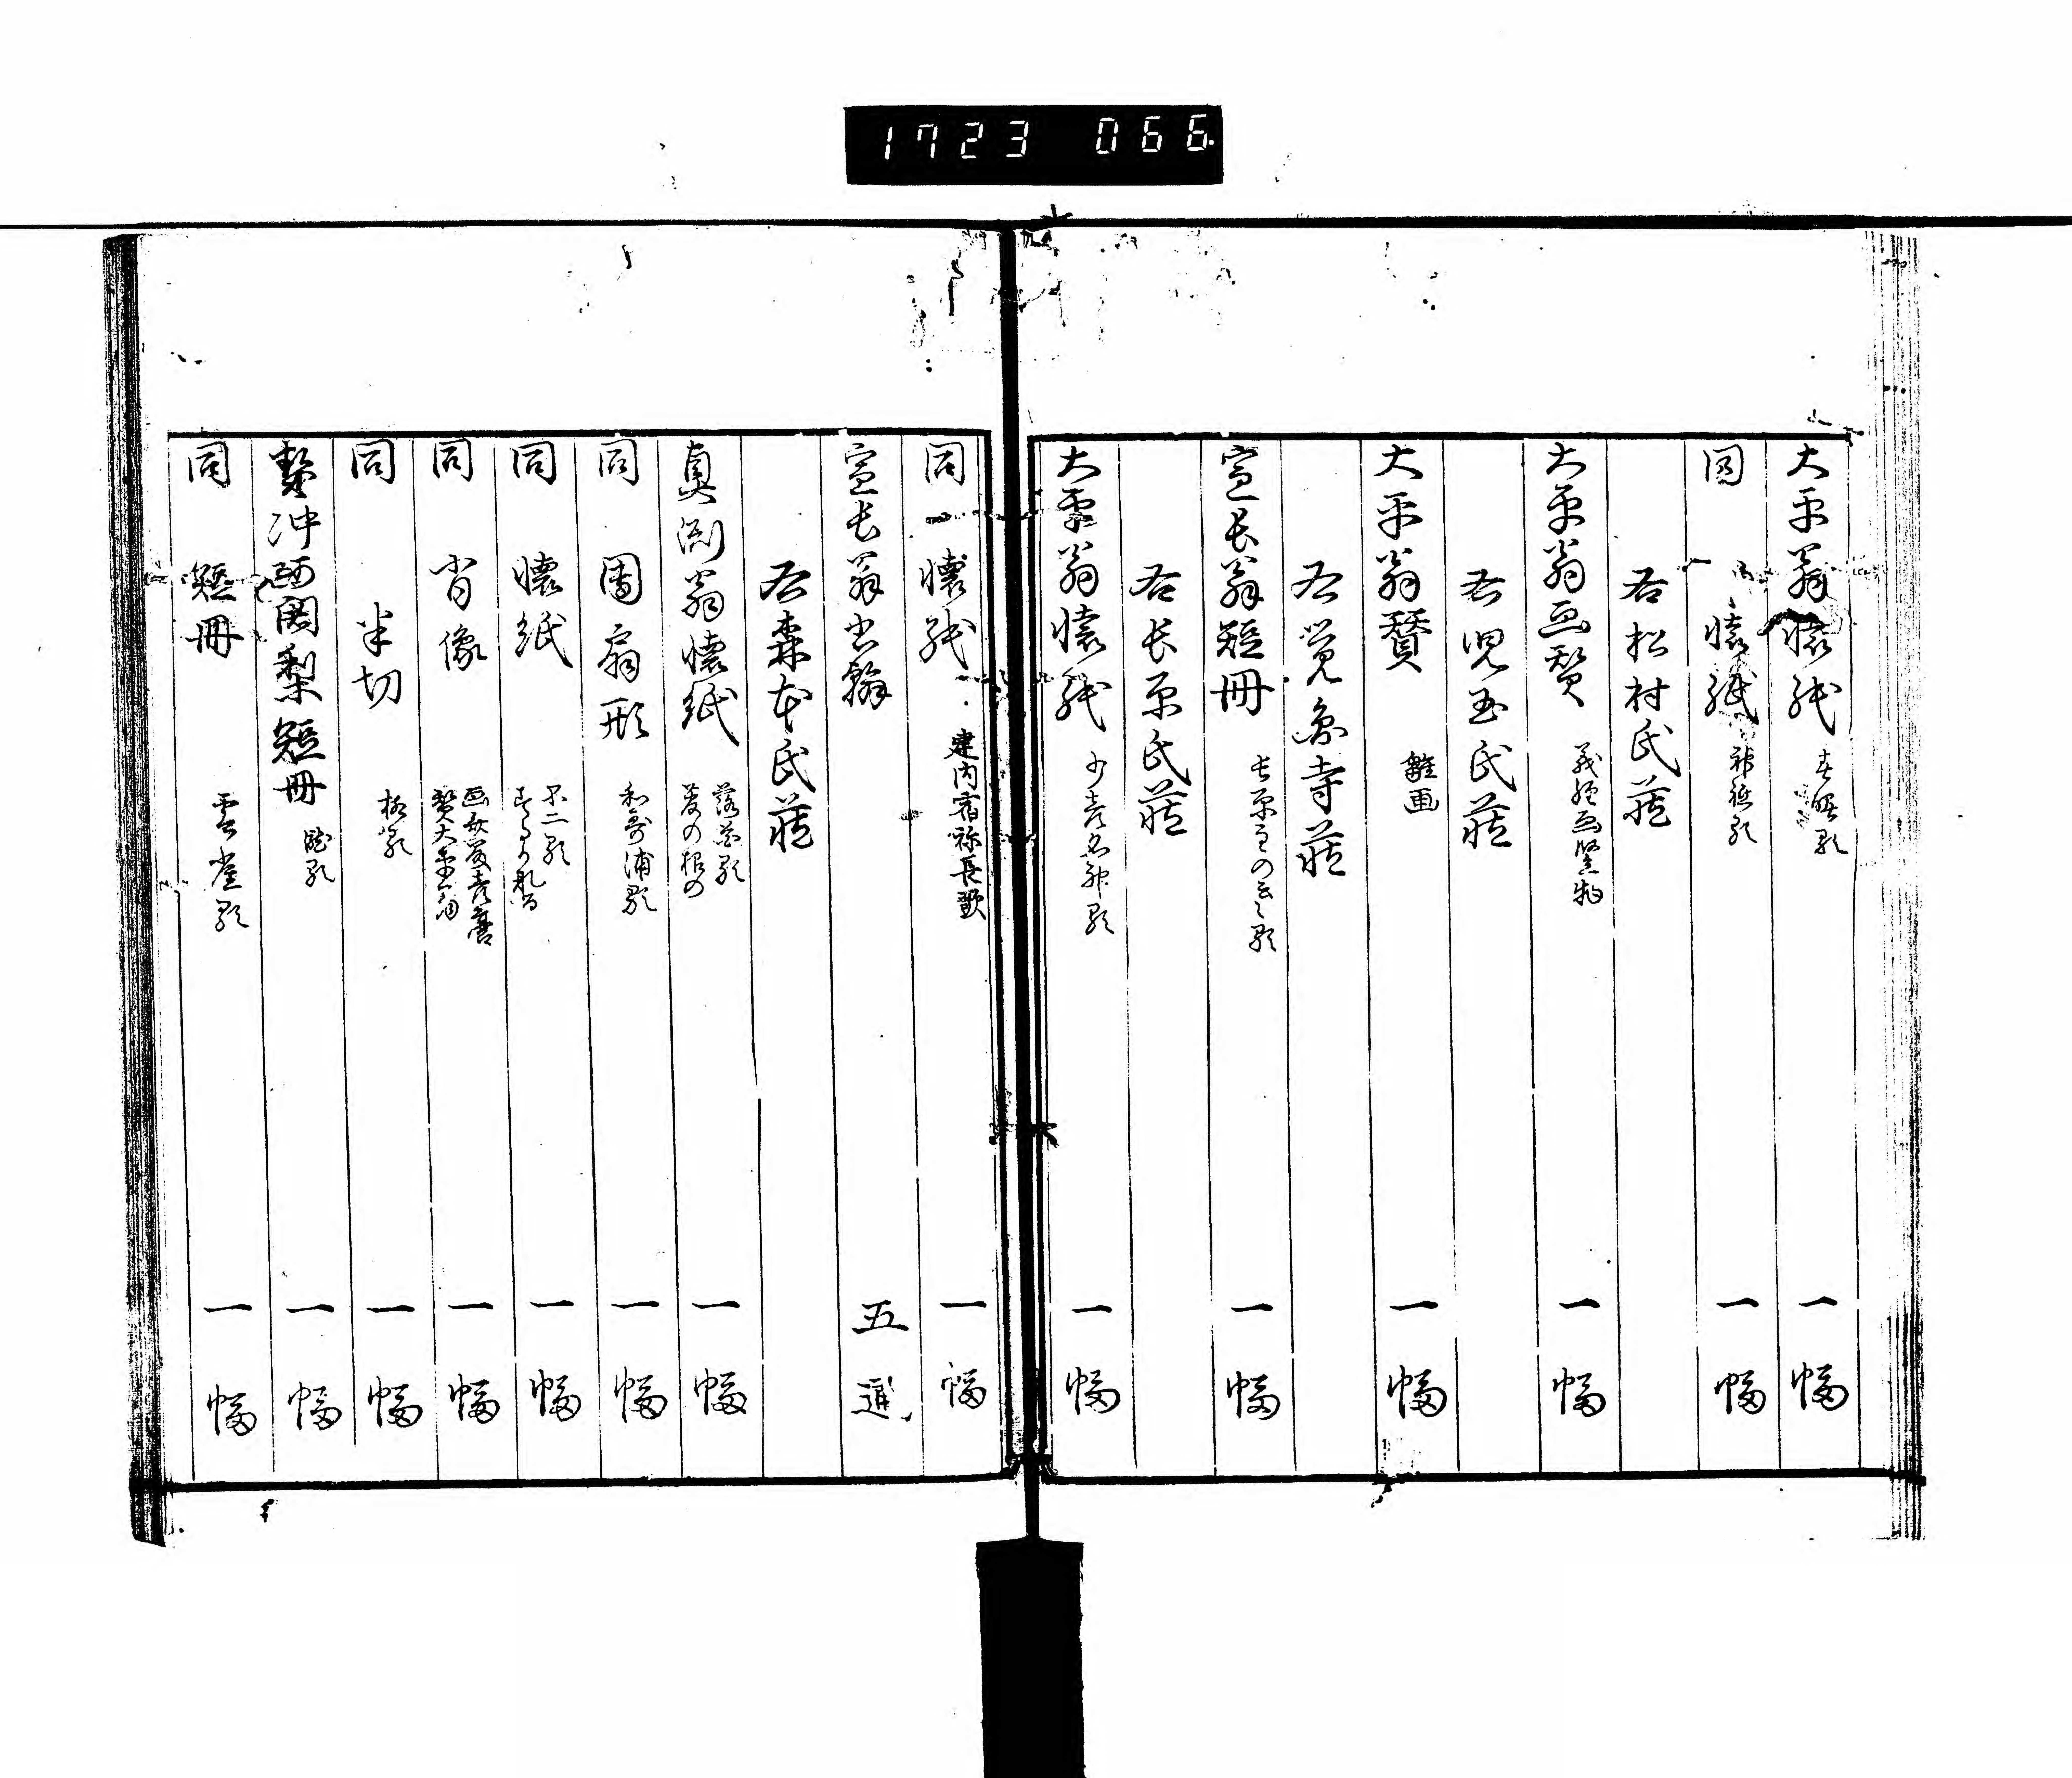 1723 066
大平翁懐紙 春曙歌 一幅
同 懐紙 神祇歌 一幅
右松村氏蔵
大平翁画賛 義経画竪物 一幅
右児玉氏蔵
大平翁賛 雛画 一幅
右覚象寺蔵
宣長翁短冊 一幅
右長原氏蔵
大平翁懐紙 少彦名神歌 一幅
同 懐紙 建内宿祢長歌 一幅
宣長翁書翰 五通
右森本氏蔵
真淵翁懐紙 落葉歌 一幅
同 団扇形 和歌浦歌 一幅
同 懐紙 不二歌 一幅
同 肖像 賛大平翁 一幅
同 半切 一幅
契沖阿闍梨短冊 一幅
同 短冊 一幅